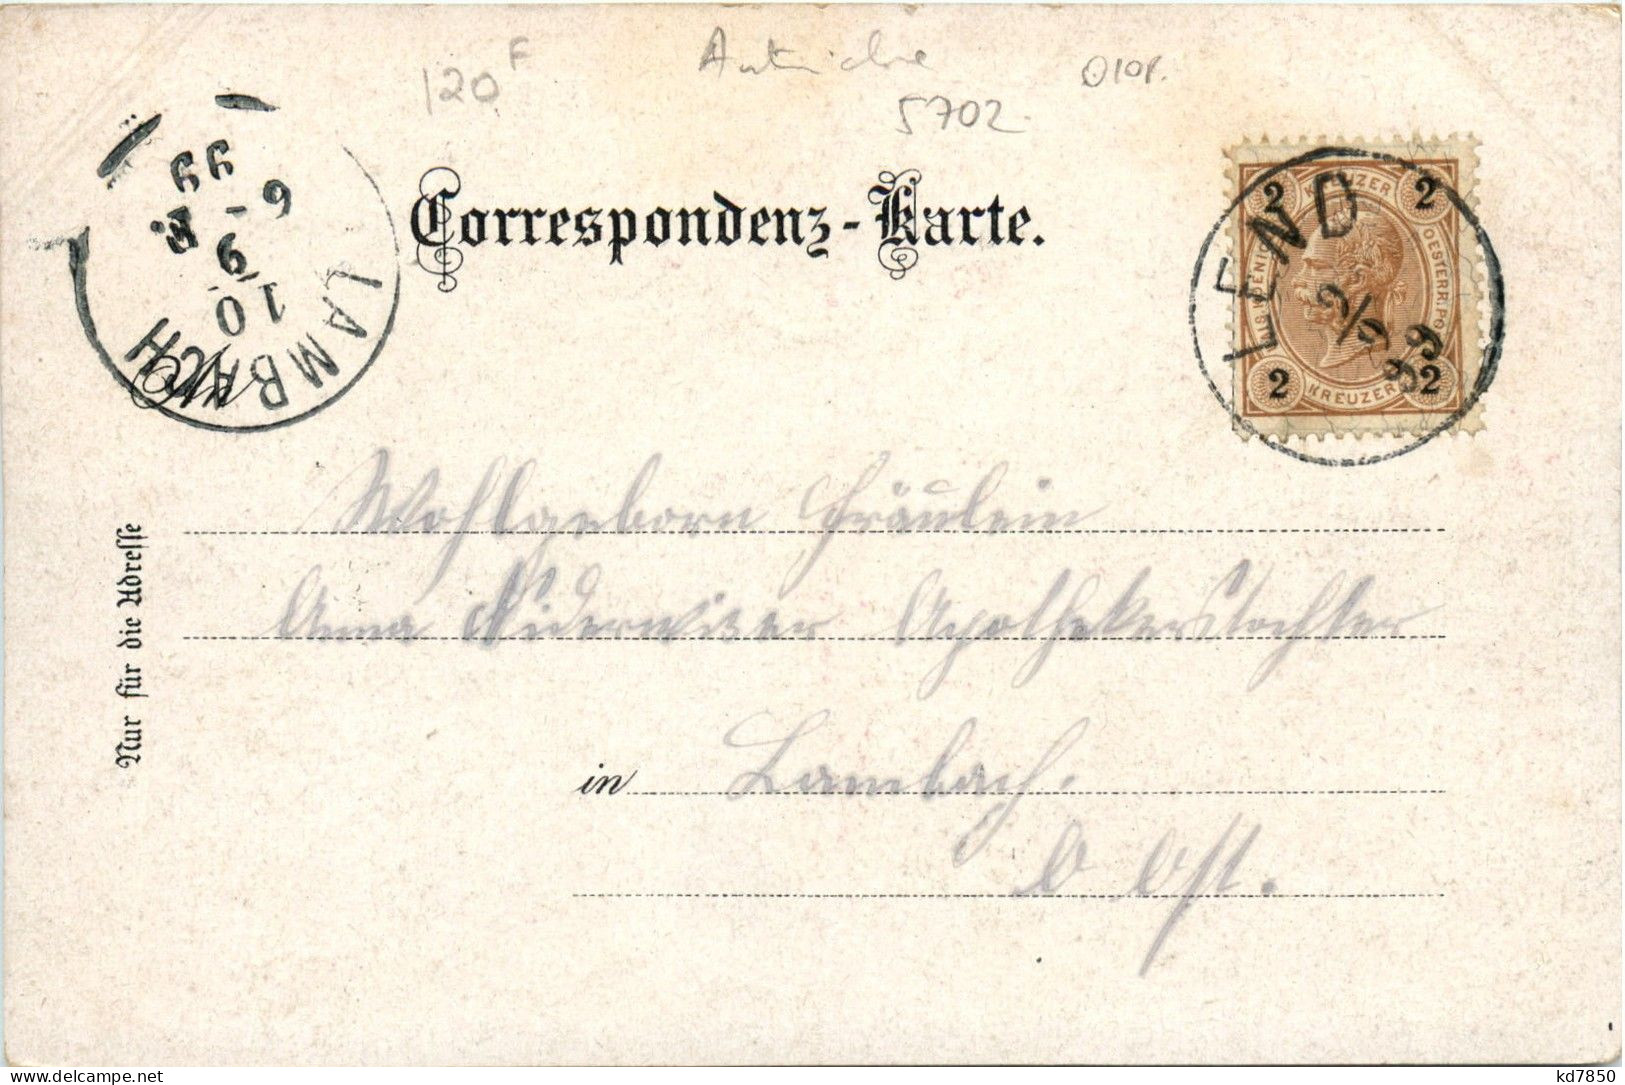 120 F
5702
LAMBACH
10
9
6
99
Correspondenz-Karte.
LEND
9/9 99
2 KREUZER 2
OESTERR. PO
2 KREUZER 2
Nur für die Adresse
Wohlgeborn Fräulein
Anna Niderwizer Apothekerstochter
in Lambach.
O Öst.
delcampe.net
kd7850